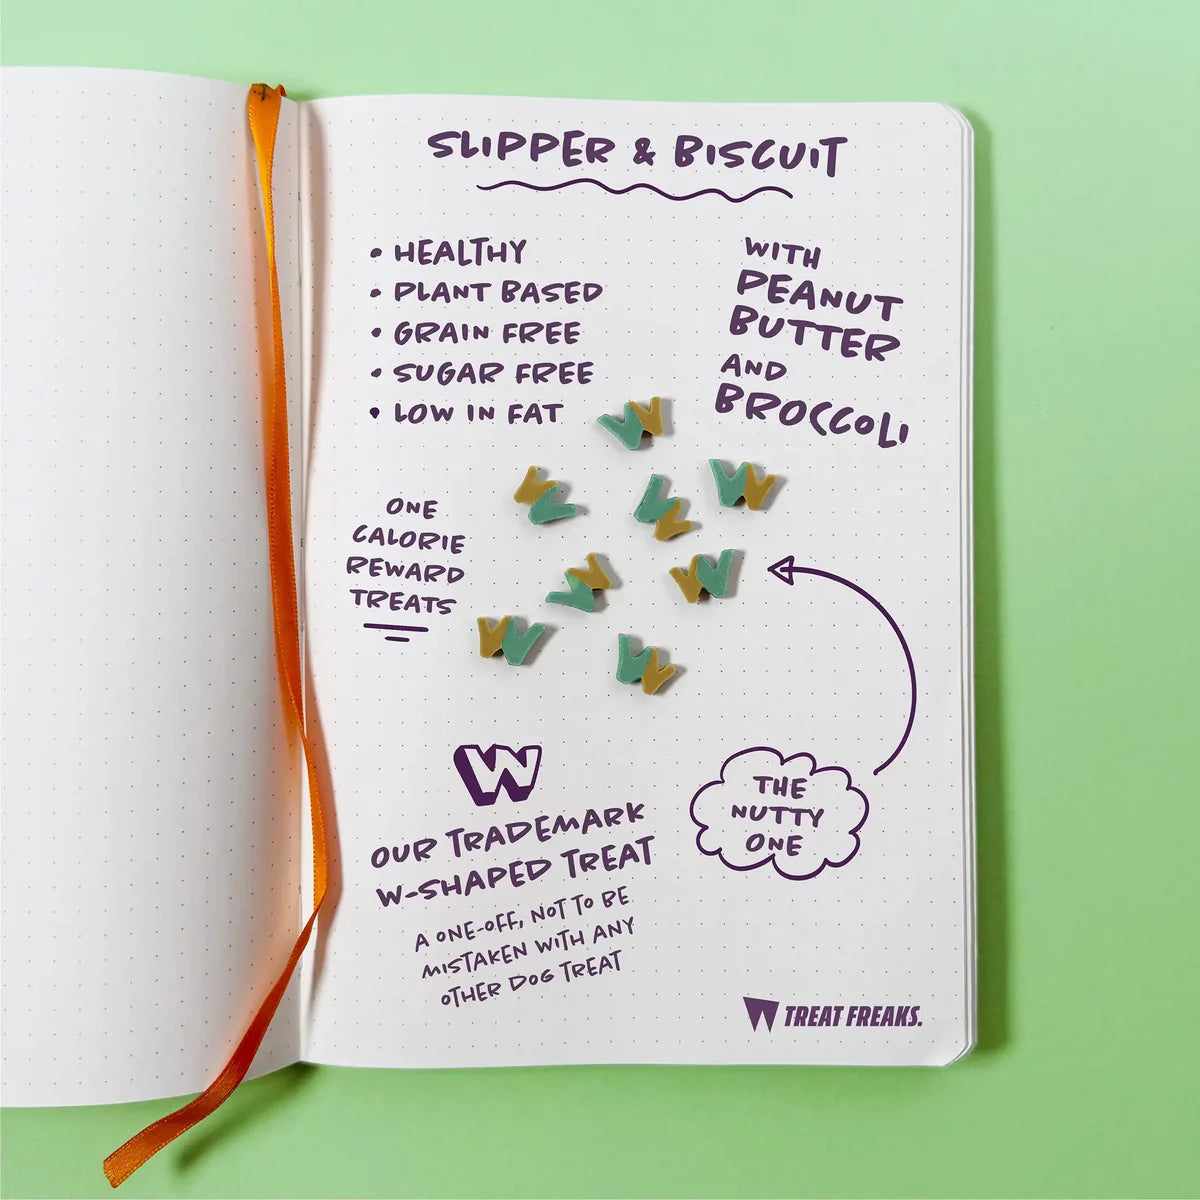 SLIPPER & BISCUIT
• HEALTHY
• PLANT BASED
• GRAIN FREE
• SUGAR FREE
• LOW IN FAT
WITH
PEANUT
BUTTER
AND
BROCCOLI
ONE
CALORIE
REWARD
TREATS
W
OUR TRADEMARK
W-SHAPED TREAT
A ONE-OFF, NOT TO BE
MISTAKEN WITH ANY
OTHER DOG TREAT
THE
NUTTY
ONE
TREAT FREAKS.